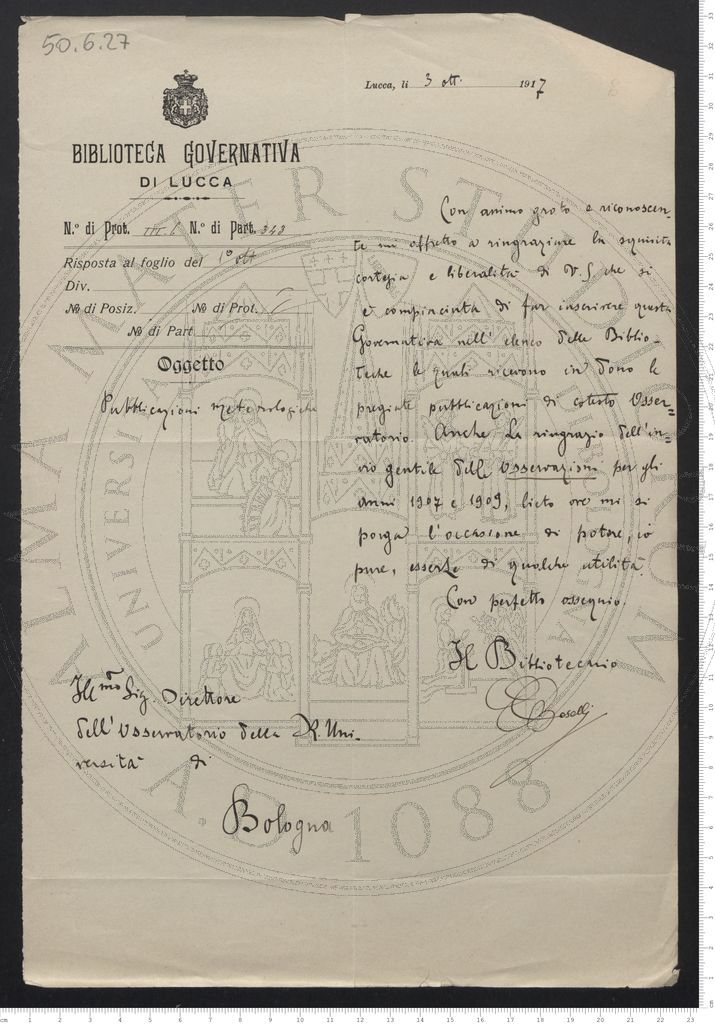 50.6.27
Lucca, li 3 ott. 1917
BIBLIOTECA GOVERNATIVA
DI LUCCA
N.º di Prot. N.º di Part. 343
Risposta al foglio del 1º ott
Div.
Nº di Posiz. Nº di Prot.
Nº di Part.
Oggetto
Pubblicazioni meteorologiche
Con animo grato e riconoscen-
te mi affretto a ringraziare la squisita
cortesia e liberalità di V. S. che si
è compiaciuta di far inscrivere questa
Governativa nell'elenco delle Biblio-
teche le quali ricevono in dono le
pregiate pubblicazioni di cotesto Osser-
vatorio. Anche La ringrazio dell'in-
vio gentile delle Osservazioni per gli
anni 1907 e 1909, lieto ove mi si
porga l'occasione di potere, io
pure, esserLe di qualche utilità.
Con perfetto ossequio.
Il Bibliotecario
Boselli
Ill.mo Sig. Direttore
dell'Osservatorio della R. Uni-
versità di
Bologna
ALMA MATER STUDIORUM
UNIVERSI
A.D. 1088